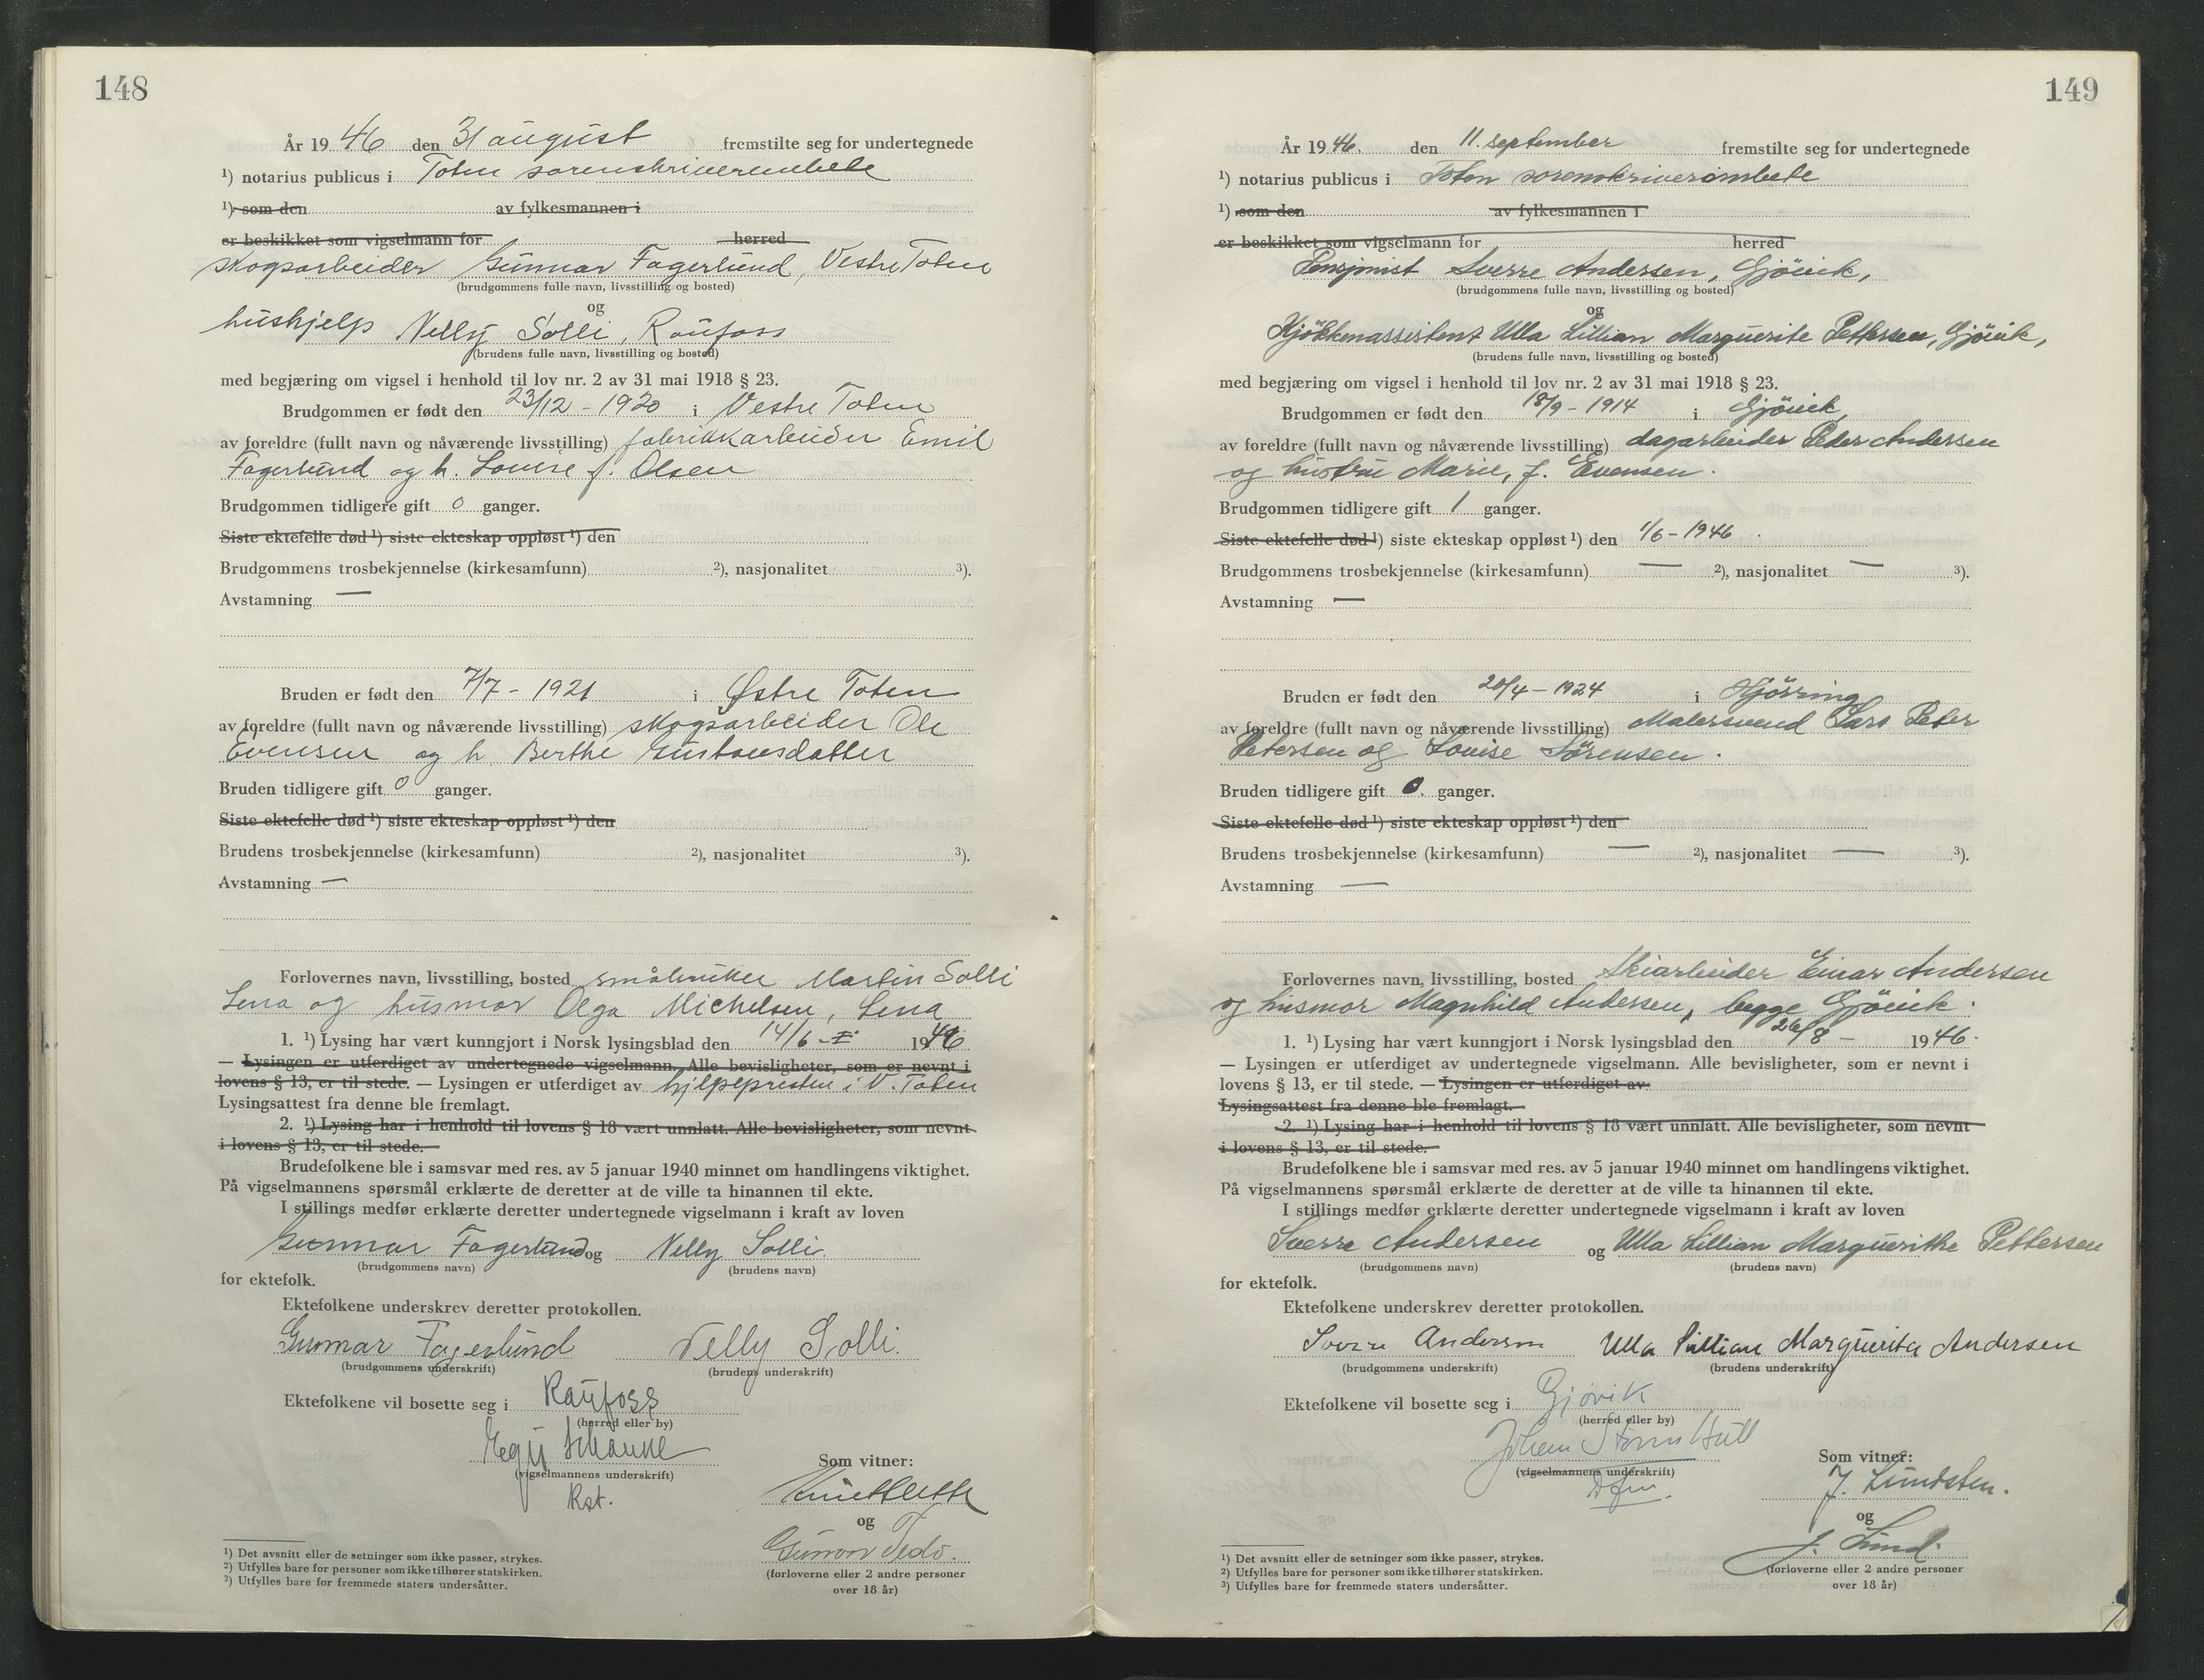 148
År 1946 den 31 august fremstilte seg for undertegnede
¹) notarius publicus i Toten sorenskriverembete
¹) som den av fylkesmannen i
er beskikket som vigselmann for herred
skogsarbeider Gunnar Fagerlund, Vestre Toten
(brudgommens fulle navn, livsstilling og bosted)
og
hushjelp Nelly Solli, Raufoss
(brudens fulle navn, livsstilling og bosted)
med begjæring om vigsel i henhold til lov nr. 2 av 31 mai 1918 § 23.
Brudgommen er født den 23/12 - 1920 i Vestre Toten
av foreldre (fullt navn og nåværende livsstilling) fabrikkarbeider Emil
Fagerlund og h. Lovise f. Olsen
Brudgommen tidligere gift 0 ganger.
Siste ektefelle død ¹) siste ekteskap oppløst ¹) den
Brudgommens trosbekjennelse (kirkesamfunn) ²), nasjonalitet ³).
Avstamning —
Bruden er født den 7/7 - 1921 i Østre Toten
av foreldre (fullt navn og nåværende livsstilling) skogsarbeider Ole
Evensen og h. Berthe Gustavsdatter
Bruden tidligere gift 0 ganger.
Siste ektefelle død ¹) siste ekteskap oppløst ¹) den
Brudens trosbekjennelse (kirkesamfunn) ²), nasjonalitet ³).
Avstamning —
Forlovernes navn, livsstilling, bosted småbruker Martin Solli
Lena og husmor Olga Michelsen, Lena
1. ¹) Lysing har vært kunngjort i Norsk lysingsblad den 14/6 - 1946
— Lysingen er utferdiget av undertegnede vigselmann. Alle bevisligheter, som er nevnt i
lovens § 13, er til stede. — Lysingen er utferdiget av hjelpepresten i V. Toten
Lysingsattest fra denne ble fremlagt.
2. ¹) Lysing har i henhold til lovens § 18 vært unnlatt. Alle bevisligheter, som nevnt
i lovens § 13, er til stede.
Brudefolkene ble i samsvar med res. av 5 januar 1940 minnet om handlingens viktighet.
På vigselmannens spørsmål erklærte de deretter at de ville ta hinannen til ekte.
I stillings medfør erklærte deretter undertegnede vigselmann i kraft av loven
Gunnar Fagerlund og Nelly Solli
(brudgommens navn) (brudens navn)
for ektefolk.
Ektefolkene underskrev deretter protokollen.
Gunnar Fagerlund Nelly Solli.
(brudgommens underskrift) (brudens underskrift)
Ektefolkene vil bosette seg i Raufoss
(herred eller by)
(vigselmannens underskrift)
Som vitner:
og
(forloverne eller 2 andre personer
over 18 år)
¹) Det avsnitt eller de setninger som ikke passer, strykes.
²) Utfylles bare for personer som ikke tilhører statskirken.
³) Utfylles bare for fremmede staters undersåtter.
149
År 1946. den 11. september fremstilte seg for undertegnede
¹) notarius publicus i Toten sorenskriverembete
¹) som den av fylkesmannen i
er beskikket som vigselmann for herred
Pensjonist Sverre Andersen, Gjövik,
(brudgommens fulle navn, livsstilling og bosted)
og
Kjökkenassistent Ulla Lillian Marguerite Pettersen, Gjövik,
(brudens fulle navn, livsstilling og bosted)
med begjæring om vigsel i henhold til lov nr. 2 av 31 mai 1918 § 23.
Brudgommen er født den 18/9 - 1914 i Gjövik,
av foreldre (fullt navn og nåværende livsstilling) dagarbeider Peder Andersen
og hustru Marie, f. Evensen.
Brudgommen tidligere gift 1 ganger.
Siste ektefelle død ¹) siste ekteskap oppløst ¹) den 1/6 - 1946.
Brudgommens trosbekjennelse (kirkesamfunn) — ²), nasjonalitet — ³).
Avstamning —
Bruden er født den 20/4 - 1924 i Hjörring
av foreldre (fullt navn og nåværende livsstilling) Malersvend Lars Peter
Petersen og Louise Sörensen.
Bruden tidligere gift 0. ganger.
Siste ektefelle død ¹) siste ekteskap oppløst ¹) den
Brudens trosbekjennelse (kirkesamfunn) — ²), nasjonalitet — ³).
Avstamning —
Forlovernes navn, livsstilling, bosted Skiarbeider Einar Andersen
og husmor Magnhild Andersen, begge Gjövik.
1. ¹) Lysing har vært kunngjort i Norsk lysingsblad den 26/8 - 1946.
— Lysingen er utferdiget av undertegnede vigselmann. Alle bevisligheter, som er nevnt i
lovens § 13, er til stede. — Lysingen er utferdiget av
Lysingsattest fra denne ble fremlagt.
2. ¹) Lysing har i henhold til lovens § 18 vært unnlatt. Alle bevisligheter, som nevnt
i lovens § 13, er til stede.
Brudefolkene ble i samsvar med res. av 5 januar 1940 minnet om handlingens viktighet.
På vigselmannens spørsmål erklærte de deretter at de ville ta hinannen til ekte.
I stillings medfør erklærte deretter undertegnede vigselmann i kraft av loven
Sverre Andersen og Ulla Lillian Marguerithe Pettersen
(brudgommens navn) (brudens navn)
for ektefolk.
Ektefolkene underskrev deretter protokollen.
Sverre Andersen Ulla Lillian Marguerita Andersen
(brudgommens underskrift) (brudens underskrift)
Ektefolkene vil bosette seg i Gjövik
(herred eller by)
(vigselmannens underskrift)
Som vitner:
J. Lundsten.
og
J. Lund.
(forloverne eller 2 andre personer
over 18 år)
¹) Det avsnitt eller de setninger som ikke passer, strykes.
²) Utfylles bare for personer som ikke tilhører statskirken.
³) Utfylles bare for fremmede staters undersåtter.